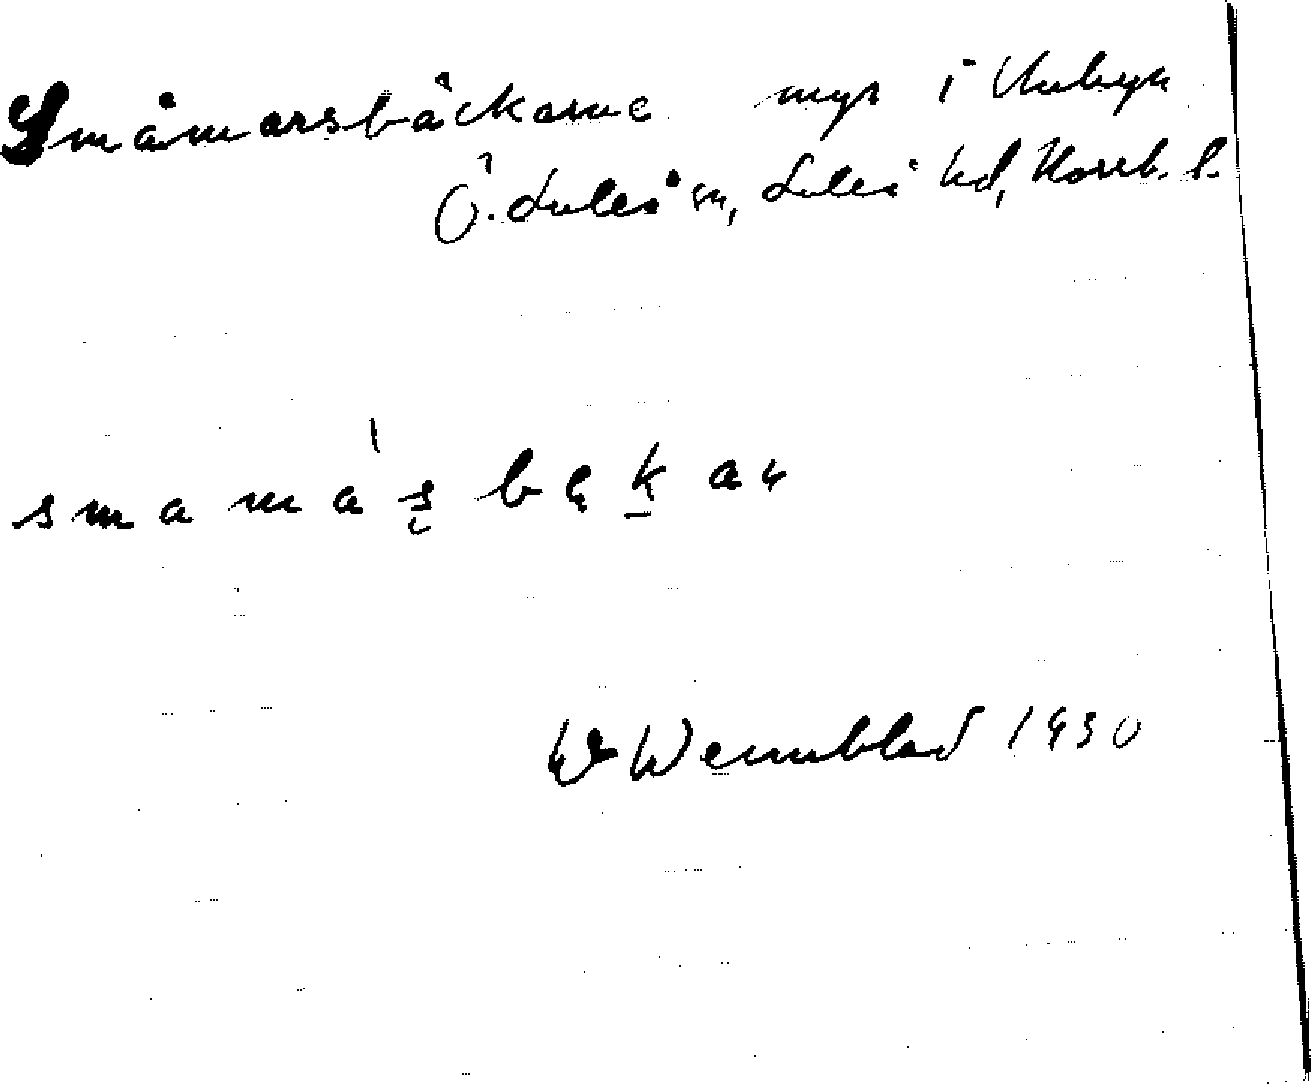 Småmorsbäckarne myr i Unbyn
Ö. Luleå sn, Luleå hd, Norrb. l.
smamasbękan
W Wennblad 1930